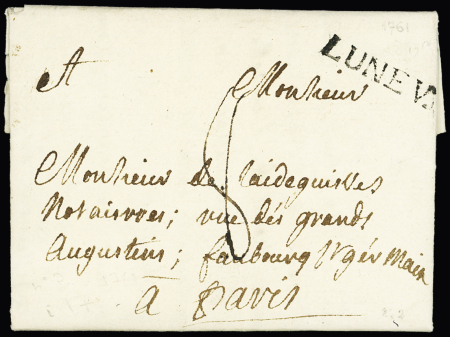 1761
LUNEV
A Monsieur
8
Monsieur de Laideguisves
Notaisroes; rue des grands
Augustins; faubourg St gér Main
à Paris